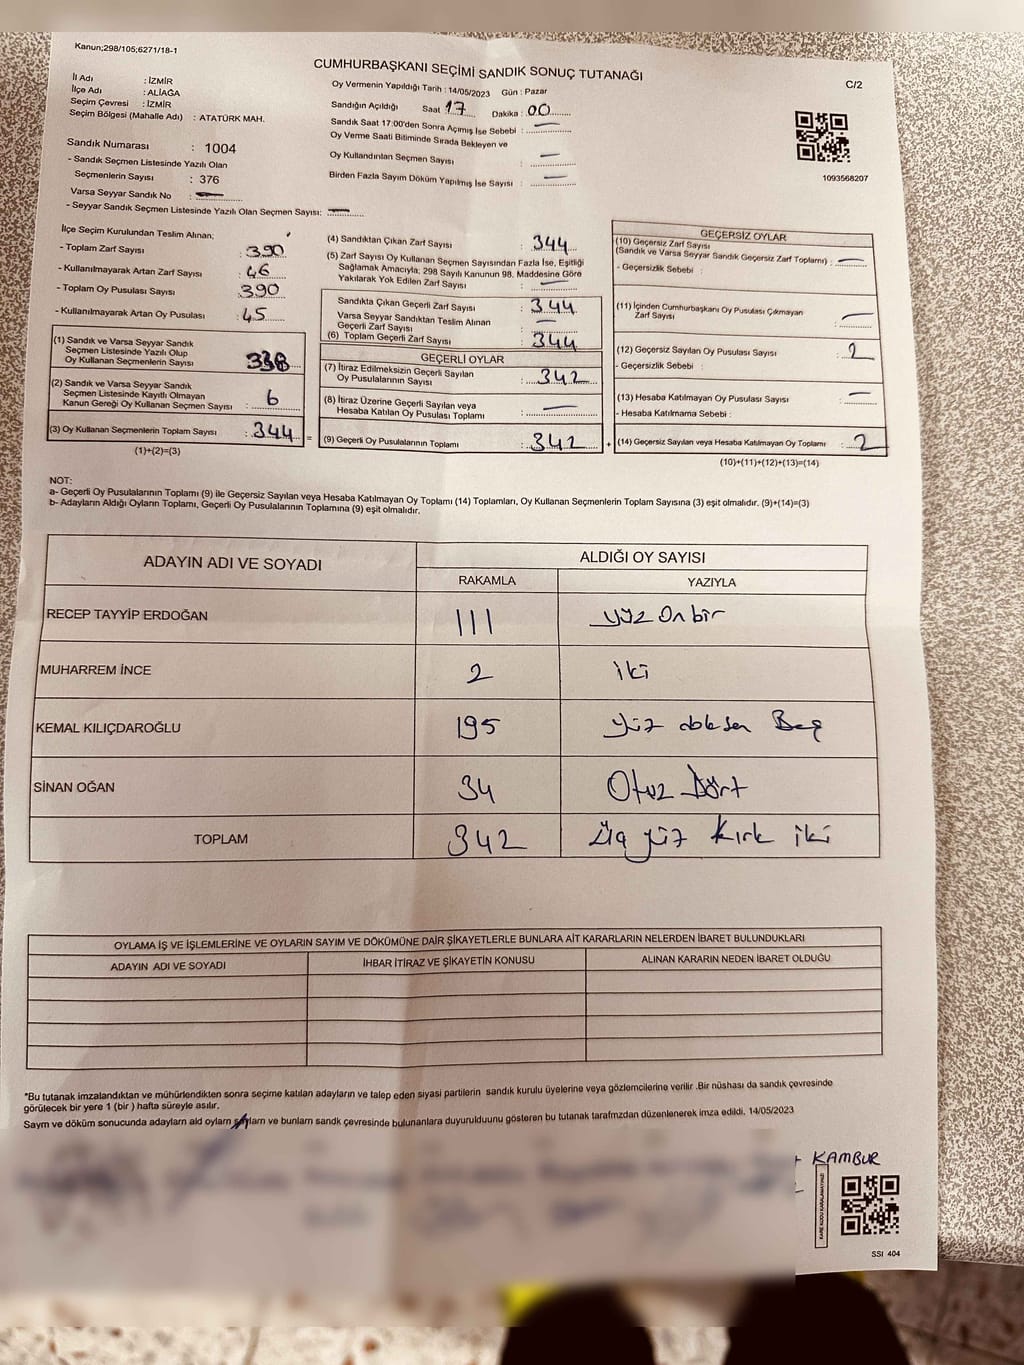 Kanun;298/105;6271/18-1
CUMHURBAŞKANI SEÇİMİ SANDIK SONUÇ TUTANAĞI
C/2
İl Adı : İZMİR
İlçe Adı : ALİAĞA
Seçim Çevresi : İZMİR
Seçim Bölgesi (Mahalle Adı) : ATATÜRK MAH.
Sandık Numarası : 1004
- Sandık Seçmen Listesinde Yazılı Olan
Seçmenlerin Sayısı : 376
Varsa Seyyar Sandık No : —
- Seyyar Sandık Seçmen Listesinde Yazılı Olan Seçmen Sayısı: —
Oy Vermenin Yapıldığı Tarih : 14/05/2023 Gün : Pazar
Sandığın Açıldığı Saat 17 Dakika : 00
Sandık Saat 17:00'den Sonra Açımış İse Sebebi : —
Oy Verme Saati Bitiminde Sırada Bekleyen ve
Oy Kullandırılan Seçmen Sayısı : —
Birden Fazla Sayım Döküm Yapılmış İse Sayısı : —
1093568207
İlçe Seçim Kurulundan Teslim Alınan;
- Toplam Zarf Sayısı : 390
- Kullanılmayarak Artan Zarf Sayısı : 46
- Toplam Oy Pusulası Sayısı : 390
- Kullanılmayarak Artan Oy Pusulası : 45
(1) Sandık ve Varsa Seyyar Sandık
Seçmen Listesinde Yazılı Olup
Oy Kullanan Seçmenlerin Sayısı : 338
(2) Sandık ve Varsa Seyyar Sandık
Seçmen Listesinde Kayıtlı Olmayan
Kanun Gereği Oy Kullanan Seçmen Sayısı : 6
(3) Oy Kullanan Seçmenlerin Toplam Sayısı : 344 =
(1)+(2)=(3)
(4) Sandıktan Çıkan Zarf Sayısı : 344
(5) Zarf Sayısı Oy Kullanan Seçmen Sayısından Fazla İse, Eşitliği
Sağlamak Amacıyla; 298 Sayılı Kanunun 98. Maddesine Göre
Yakılarak Yok Edilen Zarf Sayısı : —
Sandıkta Çıkan Geçerli Zarf Sayısı : 344
Varsa Seyyar Sandıktan Teslim Alınan
Geçerli Zarf Sayısı : —
(6) Toplam Geçerli Zarf Sayısı : 344
GEÇERLİ OYLAR
(7) İtiraz Edilmeksizin Geçerli Sayılan
Oy Pusulalarının Sayısı : 342
(8) İtiraz Üzerine Geçerli Sayılan veya
Hesaba Katılan Oy Pusulası Toplamı : —
(9) Geçerli Oy Pusulalarının Toplamı : 342 +
GEÇERSİZ OYLAR
(10) Geçersiz Zarf Sayısı
(Sandık ve Varsa Seyyar Sandık Geçersiz Zarf Toplamı) : —
- Geçersizlik Sebebi :
(11) İçinden Cumhurbaşkanı Oy Pusulası Çıkmayan
Zarf Sayısı : —
(12) Geçersiz Sayılan Oy Pusulası Sayısı : 2
- Geçersizlik Sebebi :
(13) Hesaba Katılmayan Oy Pusulası Sayısı : —
- Hesaba Katılmama Sebebi :
(14) Geçersiz Sayılan veya Hesaba Katılmayan Oy Toplamı : 2
(10)+(11)+(12)+(13)=(14)
NOT:
a- Geçerli Oy Pusulalarının Toplamı (9) ile Geçersiz Sayılan veya Hesaba Katılmayan Oy Toplamı (14) Toplamları, Oy Kullanan Seçmenlerin Toplam Sayısına (3) eşit olmalıdır. (9)+(14)=(3)
b- Adayların Aldığı Oyların Toplamı, Geçerli Oy Pusulalarının Toplamına (9) eşit olmalıdır.
ADAYIN ADI VE SOYADI ALDIĞI OY SAYISI
RAKAMLA YAZIYLA
RECEP TAYYİP ERDOĞAN 111 yüz on bir
MUHARREM İNCE 2 iki
KEMAL KILIÇDAROĞLU 195 yüz doksan Beş
SİNAN OĞAN 34 Otuz Dört
TOPLAM 342 Üç yüz Kırk iki
OYLAMA İŞ VE İŞLEMLERİNE VE OYLARIN SAYIM VE DÖKÜMÜNE DAİR ŞİKAYETLERLE BUNLARA AİT KARARLARIN NELERDEN İBARET BULUNDUKLARI
ADAYIN ADI VE SOYADI İHBAR İTİRAZ VE ŞİKAYETİN KONUSU ALINAN KARARIN NEDEN İBARET OLDUĞU
*Bu tutanak imzalandıktan ve mühürlendikten sonra seçime katılan adayların ve talep eden siyasi partilerin sandık kurulu üyelerine veya gözlemcilerine verilir .Bir nüshası da sandık çevresinde
görülecek bir yere 1 (bir ) hafta süreyle asılır.
Saym ve döküm sonucunda adaylarn ald oylarn ve bunlarn sandk çevresinde bulunanlara duyurulduunu gösteren bu tutanak tarafmzdan düzenlenerek imza edildi. 14/05/2023
KAMBUR
KARE KODU KARALAMAYINIZ!
SSI 404